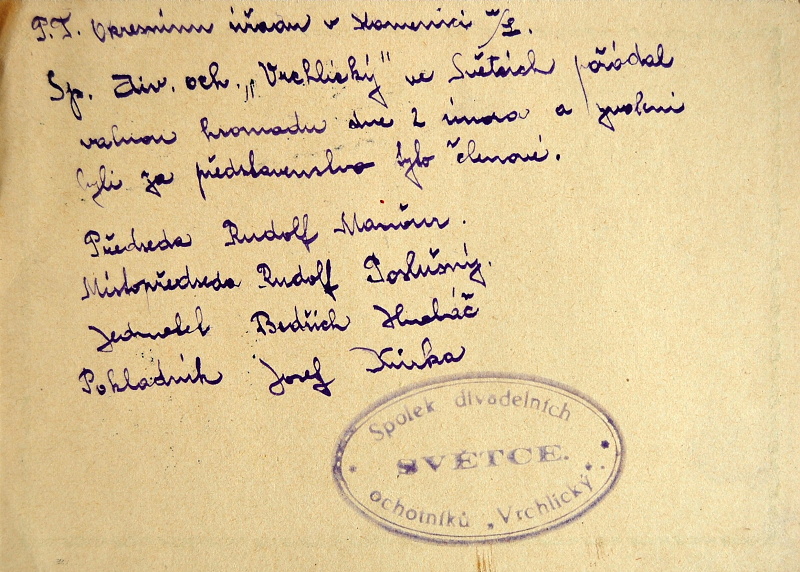 P.T. Okresnímu úřadu v Kamenici n/L.
Sp. div. och. „Vrchlický" ve Světcích pořádal
valnou hromadu dne 2 února a zvoleni
byli za představenstvo tyto členové.
Předseda Rudolf
Místopředseda Rudolf Poslušný.
Jednatel Bedřich
Pokladník Josef
Spolek divadelních
SVĚTCE.
ochotníků „Vrchlický".